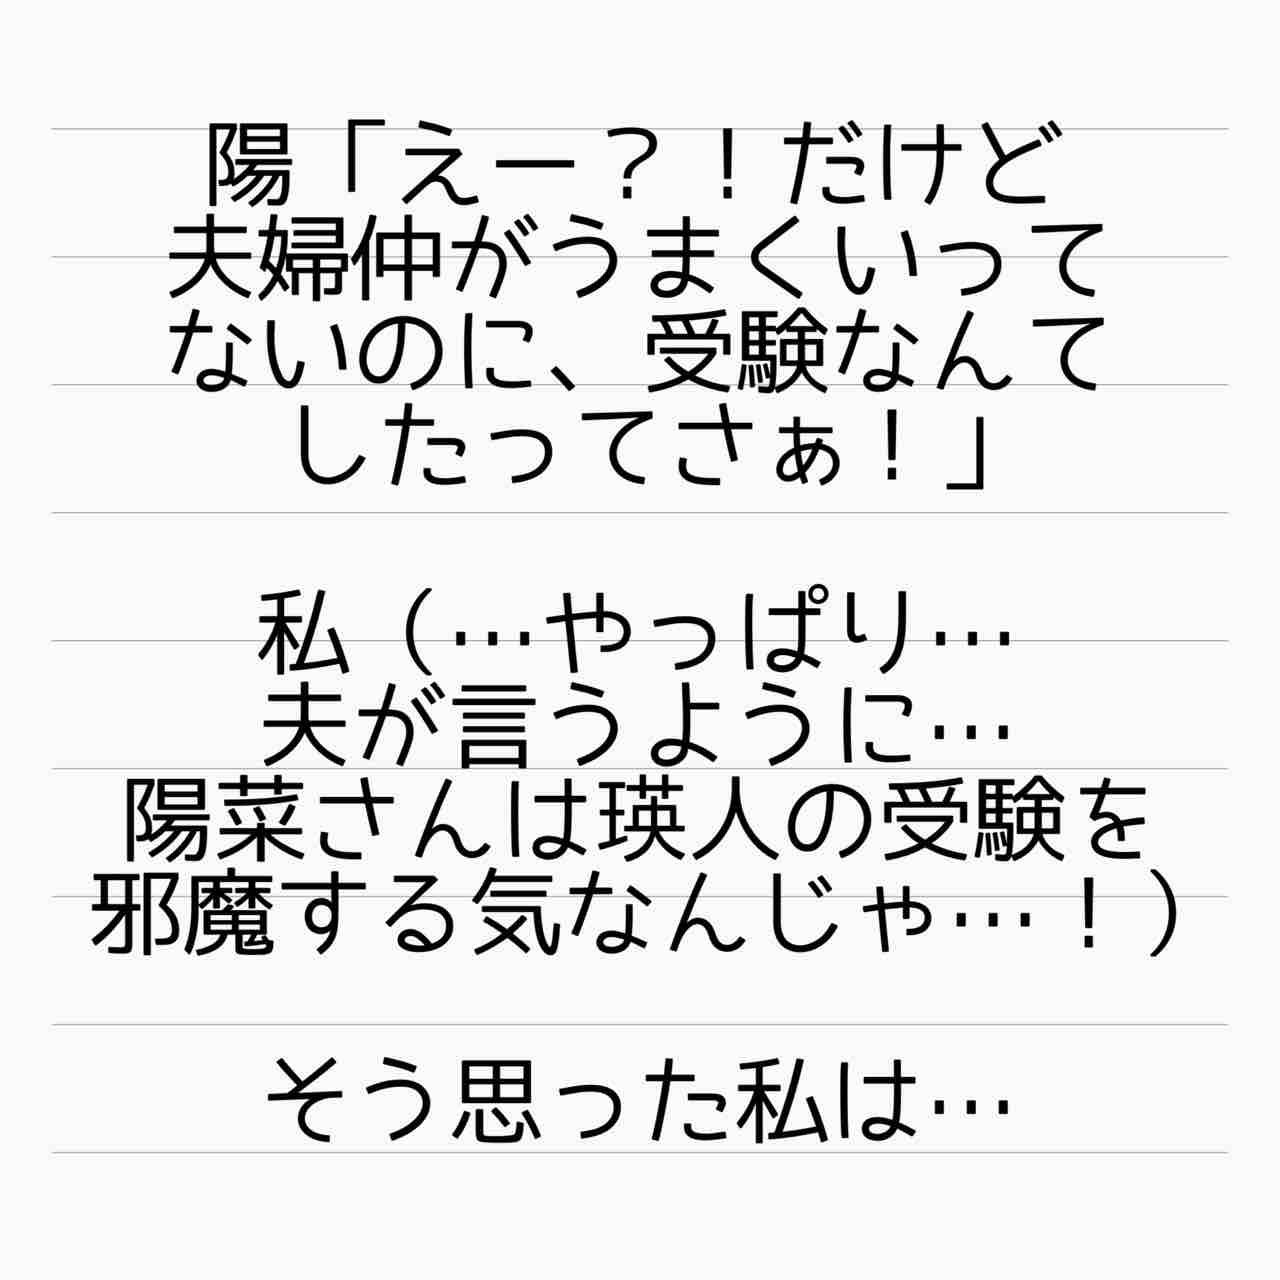 陽「えー？！だけど
夫婦仲がうまくいって
ないのに、受験なんて
したってさぁ！」
私（…やっぱり…
夫が言うように…
陽菜さんは瑛人の受験を
邪魔する気なんじゃ…！）
そう思った私は…